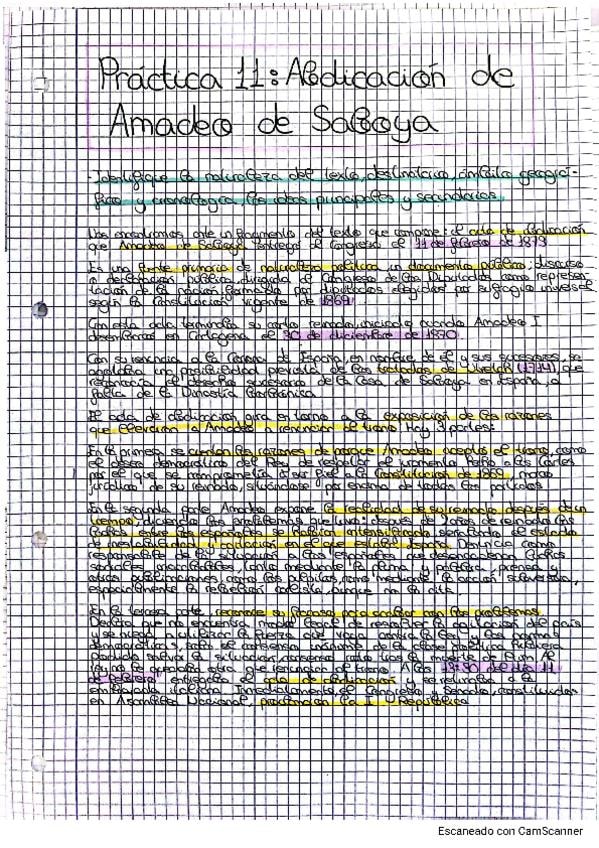 Práctica 11: Abdicación de
Amadeo de Saboya
Identifique la naturaleza del texto, destinatario, ámbito geográ-
fico y cronológico, las ideas principales y secundarias.
Nos encontramos ante un fragmento del texto que compone el acta de abdicación
que Amadeo de Saboya entregó al Congreso el 11 de febrero de 1873
Es una fuente primaria de naturaleza política, un documento público, discurso
o declaración pública dirigida al Congreso de los Diputados como represen-
tación de la nación formada por diputados elegidos por sufragio universal
según la Constitución vigente de 1869
Con esta acta terminaba su corto reinado, iniciado cuando Amadeo I
desembarcó en Cartagena el 30 de diciembre de 1870
Con su renuncia a la Corona de España, en nombre de él y sus sucesores, se
una posibilidad prevista de los tratados de Utrech (1714), que
reconocía el derecho sucesorio de la Casa de Saboya en España, a
falta de la Dinastía Borbónica.
El acta de abdicación gira en torno a la exposición de las razones
que llevaron a Amadeo a renunciar al trono. Hay 3 partes:
En la primera se cuentan las razones de porque Amadeo aceptó el trono, como
el deseo democrático del Rey de respetar el juramento hecho a las Cortes
por el que se comprometía a ser fiel a la Constitución de 1869, marco
jurídico de su reinado, situándose por encima de todos los partidos
En la segunda parte Amadeo expone la realidad de su reinado después de un
tiempo, diciendo los problemas que tuvo: después de 2 años de reinado las
luchas entre los españoles se habían intensificado, señalando el estado
de inestabilidad y agitación en el que estaba España. Denuncia como
responsables de la situación a los españoles que desencadenan
sociales, tanto mediante la pluma y palabra, prensa y
otras publicaciones, como las públicas, como mediante la acción subversiva,
especialmente la rebelión carlista, aunque no la cita.
En la tercera parte, reconoce su fracaso para acabar con los problemas.
Declara que no encuentra modo legal de resolver la agitación del país
y se niega a utilizar la fuerza que vaya contra la ley y las normas
democráticas, tras el
podido salvar la situación, tras la muerte de Prim, le
quedaba otra que renunciar al trono. A las 13:30 del día 11
de febrero, entregaba el acta de abdicación y se retiraba a la
embajada italiana. Inmediatamente, el Congreso y Senado, constituidos
en Asamblea Nacional, proclamaron la I República
Escaneado con CamScanner